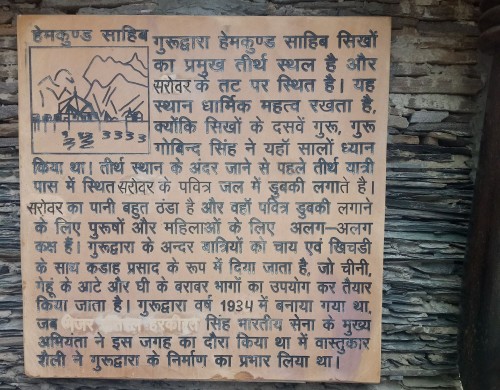 हेमकुण्ड साहिब
गुरूद्वारा हेमकुण्ड साहिब सिखों
का प्रमुख तीर्थ स्थल है और
सरोवर के तट पर स्थित है। यह
स्थान धार्मिक महत्व रखता है,
क्योंकि सिखों के दसवें गुरू, गुरू
गोबिन्द सिंह ने यहाँ सालों ध्यान
किया था। तीर्थ स्थान के अंदर जाने से पहले तीर्थ यात्री
पास में स्थित सरोवर के पवित्र जल में डुबकी लगाते है।
सरोवर का पानी बहुत ठंडा है और वहाँ पवित्र डुबकी लगाने
के लिए पुरूषों और महिलाओं के लिए अलग–अलग
कक्ष हैं। गुरूद्वारा के अन्दर यात्रियों को चाय एवं खिचडी
के साथ कडाह प्रसाद के रूप में दिया जाता है, जो चीनी,
गेहूं के आटे और घी के बराबर भागों का उपयोग कर तैयार
किया जाता है। गुरूद्वारा वर्ष 1934 में बनाया गया था,
जब मेजर हरकीरत सिंह भारतीय सेना के मुख्य
अभियता ने इस जगह का दौरा किया था में वास्तुकार
शैली ने गुरूद्वारा के निर्माण का प्रभार लिया था।